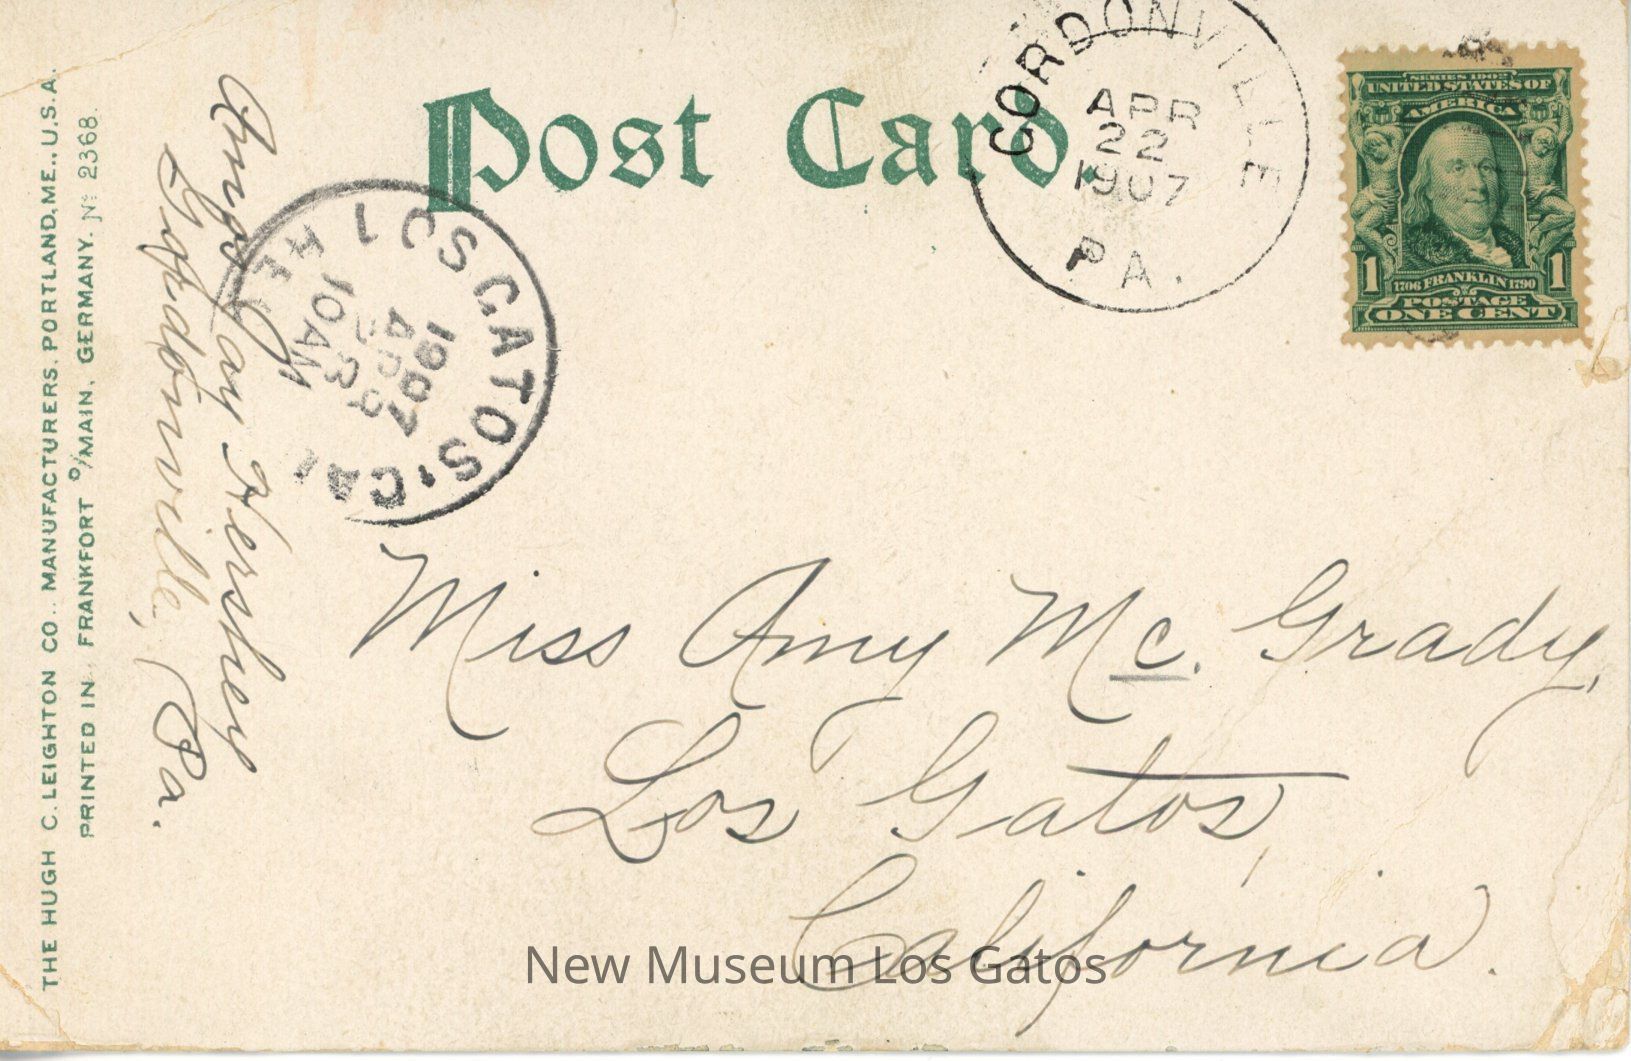 Post Card.
GORDONVILLE
APR
22
1907
PA.
SERIES 1902
UNITED STATES OF
AMERICA
1 1
1706 FRANKLIN 1790
POSTAGE
ONE CENT
LOS GATOS, CAL
1907
10 AM
REC'D
Amos Jay Hershey
Gordonville, Pa.
THE HUGH C. LEIGHTON CO., MANUFACTURERS, PORTLAND, ME., U.S.A.
PRINTED IN FRANKFORT O/MAIN, GERMANY. No 2368.
Miss Amy Mc. Grady,
Los Gatos,
California.
New Museum Los Gatos